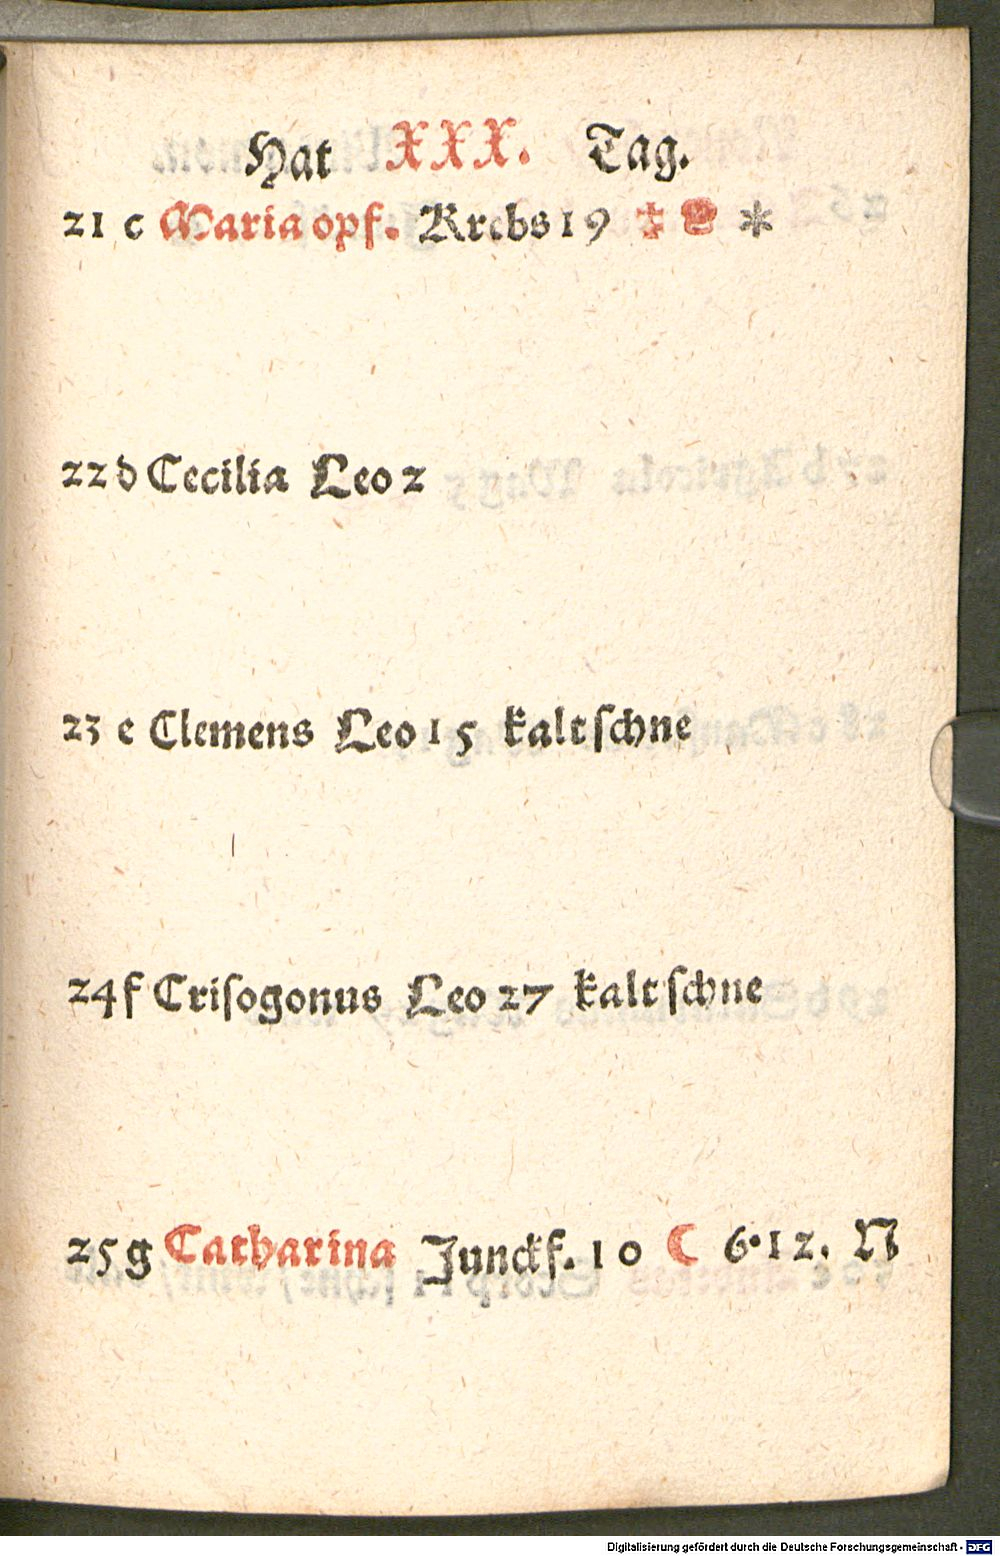 Hat XXX. Tag.
21 c Maria opf. Krebs 19 ✝ *
22 d Cecilia Leo 2
23 e Clemens Leo 15 kalt ſchne
24 f Criſogonus Leo 27 kalt ſchne
25 g Catharina Junckf. 10 ☾ 6. 12. N
Digitalisierung gefördert durch die Deutsche Forschungsgemeinschaft - DFG